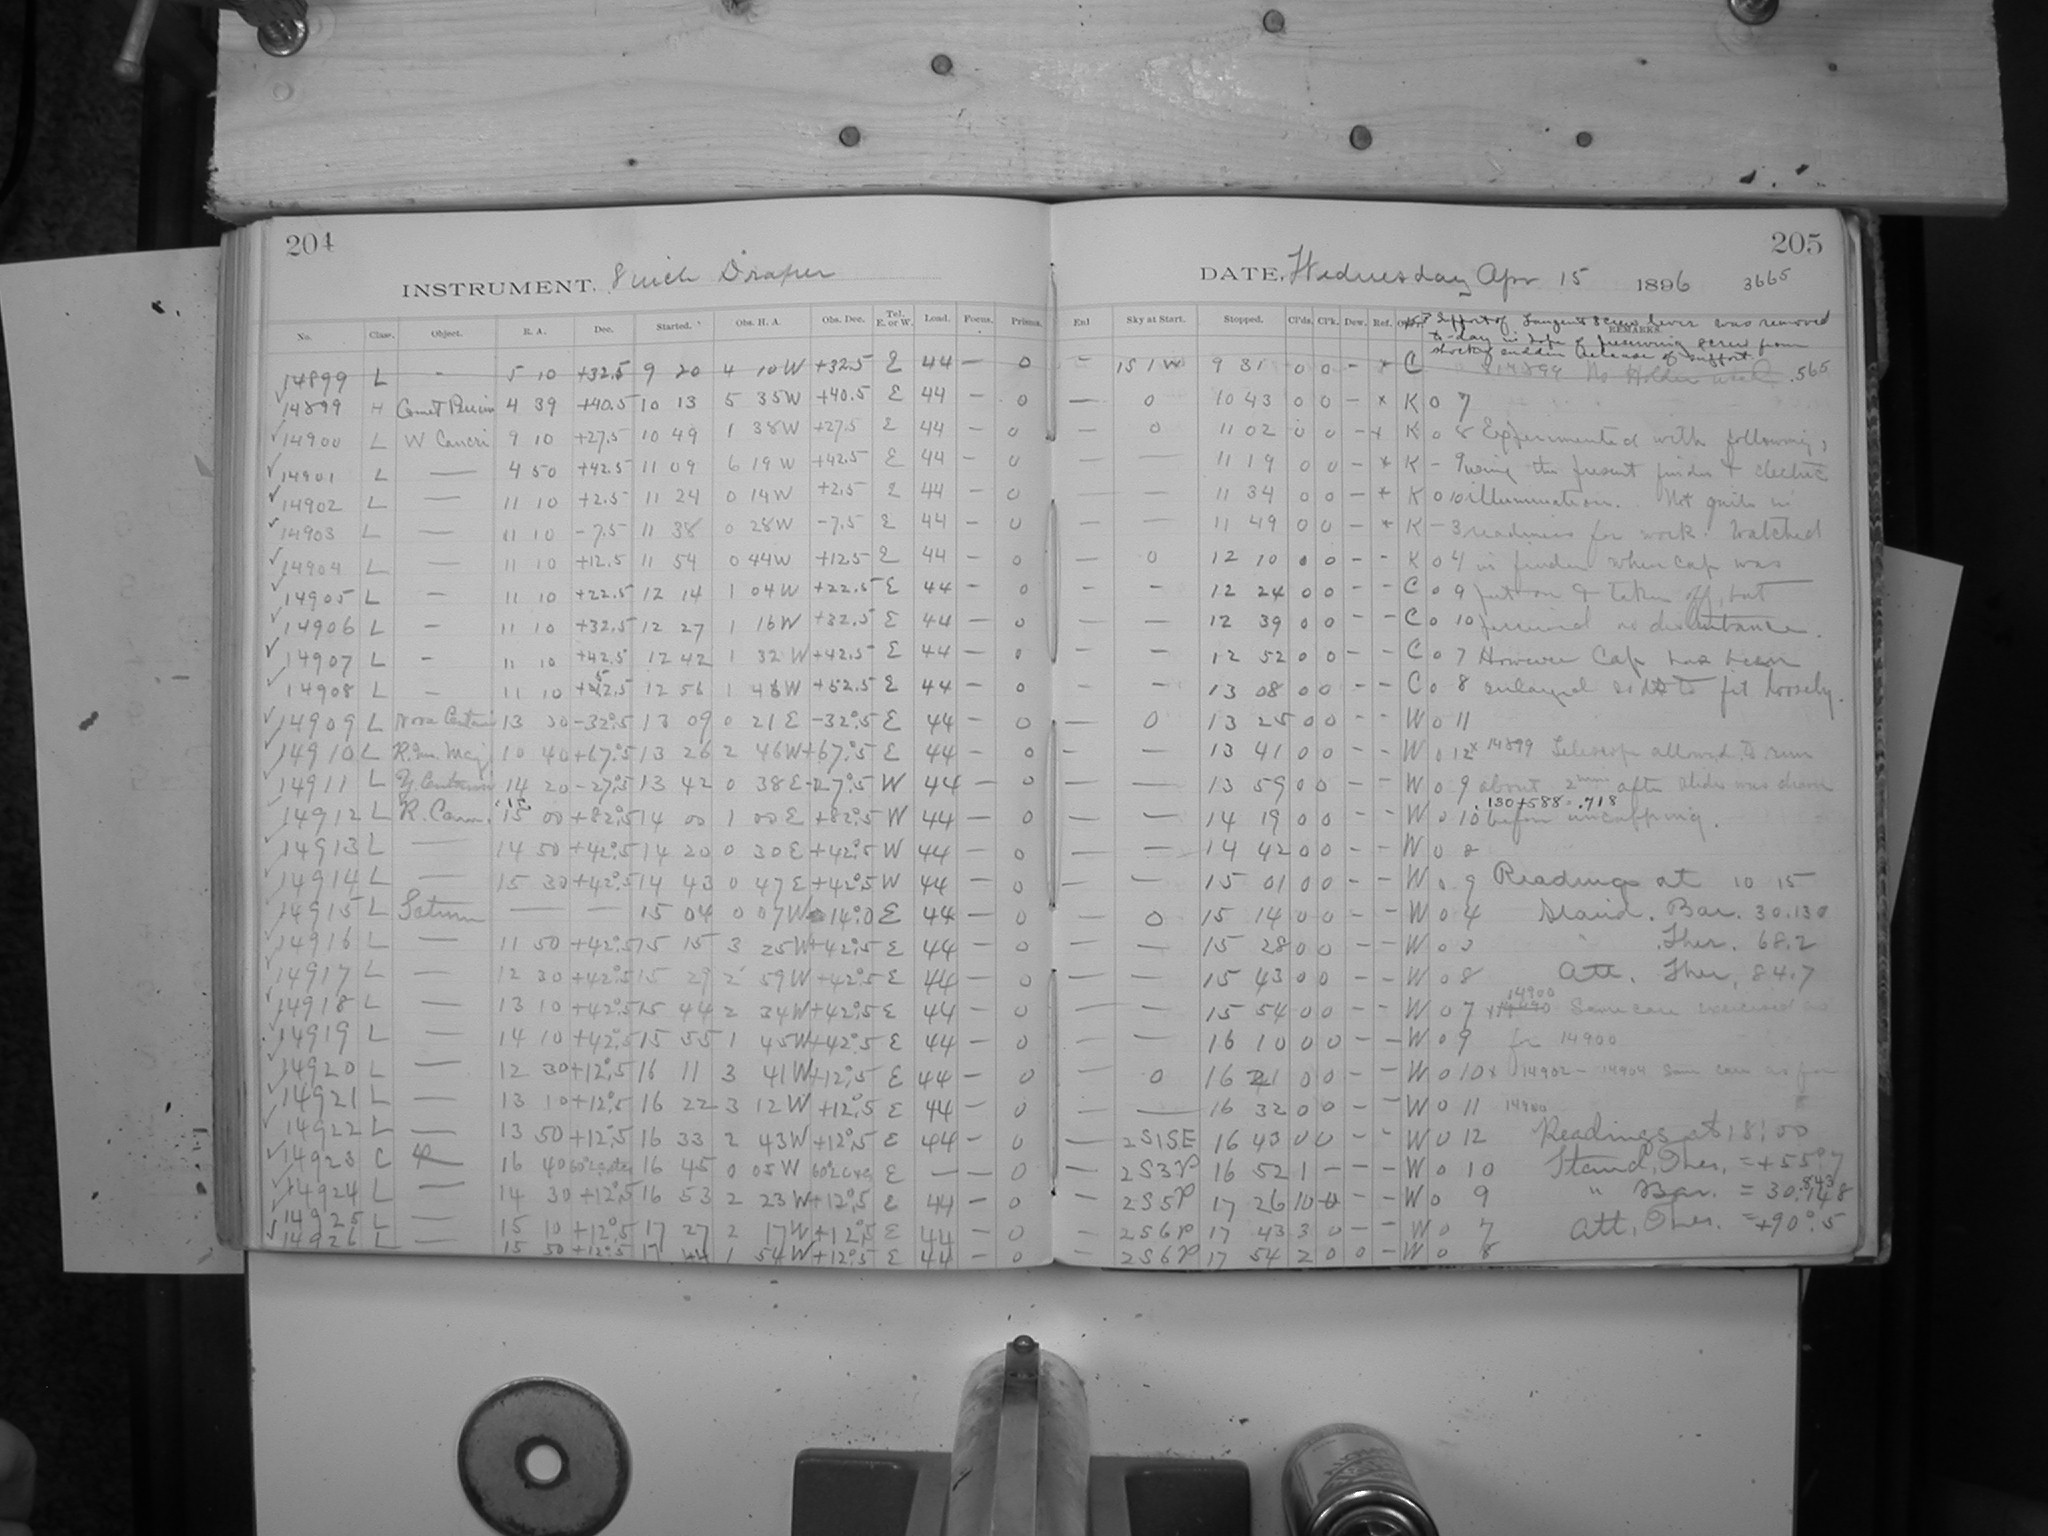 204
INSTRUMENT, 8 inch Draper
No. Class. Object. R. A. Dec. Started. Obs. H. A. Obs. Dec. Tel. E. or W. Load. Focus. Prisms.
14899 L - 5 10 +32.5 9 20 4 10W +32.5 E 44 — 0
14899 H Comet Perrine 4 39 +40.5 10 13 5 35W +40.5 E 44 — 0
14900 L W Cancri 9 10 +27.5 10 49 1 38W +27.5 E 44 — 0
14901 L — 4 50 +42.5 11 09 6 19W +42.5 E 44 — 0
14902 L — 11 10 +2.5 11 24 0 14W +2.5 E 44 — 0
14903 L — 11 10 -7.5 11 38 0 28W -7.5 E 44 — 0
14904 L — 11 10 +12.5 11 54 0 44W +12.5 E 44 — 0
14905 L — 11 10 +22.5 12 14 1 04W +22.5 E 44 — 0
14906 L — 11 10 +32.5 12 27 1 16W +32.5 E 44 — 0
14907 L — 11 10 +42.5 12 42 1 32W +42.5 E 44 — 0
14908 L — 11 10 +52.5 12 56 1 48W +52.5 E 44 — 0
14909 L Nova Centauri 13 30 -32°.5 13 09 0 21E -32°.5 E 44 — 0
14910 L R. Urs. Maj. 10 40 +67°.5 13 26 2 46W +67°.5 E 44 — 0
14911 L Centauri 14 20 -27°.5 13 42 0 38E -27°.5 W 44 — 0
14912 L R. Cam. 15 00 +82°.5 14 00 1 00E +82°.5 W 44 — 0
14913 L — 14 50 +42°.5 14 20 0 30E +42°.5 W 44 — 0
14914 L — 15 30 +42°.5 14 43 0 47E +42°.5 W 44 — 0
14915 L Saturn — — 15 04 0 07W 14°.0 E 44 — 0
14916 L — 11 50 +42°.5 15 15 3 25W +42°.5 E 44 — 0
14917 L — 12 30 +42°.5 15 29 2 59W +42°.5 E 44 — 0
14918 L — 13 10 +42°.5 15 44 2 34W +42°.5 E 44 — 0
14919 L — 14 10 +42°.5 15 55 1 45W +42°.5 E 44 — 0
14920 L — 12 30 +12°.5 16 11 3 41W +12°.5 E 44 — 0
14921 L — 13 10 +12°.5 16 22 3 12W +12°.5 E 44 — 0
14922 L — 13 50 +12°.5 16 33 2 43W +12°.5 E 44 — 0
14923 C 16 40 16 45 0 05W E — — 0
14924 L — 14 30 +12°.5 16 53 2 23W +12°.5 E 44 — 0
14925 L — 15 10 +12°.5 17 27 2 17W +12°.5 E 44 — 0
14926 L — 15 50 +12°.5 17 44 1 54W +12°.5 E 44 — 0
205
DATE, Wednesday Apr 15 1896 3665
Enl Sky at Start. Stopped. Cl'ds. Cl'k. Dew. Ref. Obs'r. REMARKS.
Support of Tangent Screw lever was removed
to-day in hope of preserving screw from
shock of sudden release of support.
— 1S1W 9 31 0 0 — × C 14899 No Holder used .565
— 0 10 43 0 0 — × K 0 7
— 0 11 02 0 0 — × K 0 8 Experimented with following,
— — 11 19 0 0 — × K — 9 using the present finder & electric
— — 11 34 0 0 — × K 0 10 illumination. Not quite in
— — 11 49 0 0 — × K — 3 readiness for work. Watched
— 0 12 10 0 0 — — K 0 4 in finder when cap was
— — 12 24 0 0 — — C 0 9 put on & taken off, but
— — 12 39 0 0 — — C 0 10 perceived no disturbance.
— — 12 52 0 0 — — C 0 7 However Cap has been
— — 13 08 0 0 — — C 0 8 enlarged so as to fit loosely.
— 0 13 25 0 0 — — W 0 11
— — 13 41 0 0 — — W 0 12 × 14899 Telescope allowed to run
— — 13 59 0 0 — — W 0 9 about 2min after slide was drawn
.130+588=.718
— — 14 19 0 0 — — W 0 10 before uncapping.
— — 14 42 0 0 — — W 0 8
— — 15 01 0 0 — — W 0 9 Readings at 10 15
— 0 15 14 0 0 — — W 0 4 Stand. Bar. 30.130
— — 15 28 0 0 — — W 0 3 Ther. 68.2
— — 15 43 0 0 — — W 0 8 Att. Ther. 84.7
14900
— — 15 54 0 0 — — W 0 7 × Same care exercised as
— — 16 10 0 0 — — W 0 9 for 14900
— 0 16 21 0 0 — — W 0 10 × 14902 - 14904 Same care as for
— — 16 32 0 0 — — W 0 11 14900
— 2S1SE 16 43 0 0 — — W 0 12 Readings at 18:00
— 2S3P 16 52 1 — — — W 0 10 Stand. Ther. = +55°.7
— 2S5P 17 26 10 0 — — W 0 9 " Bar. = 30.
— 2S6P 17 43 3 0 — — W 0 7 Att. Ther. = +90°.5
— 2S6P 17 54 2 0 0 — W 0 8